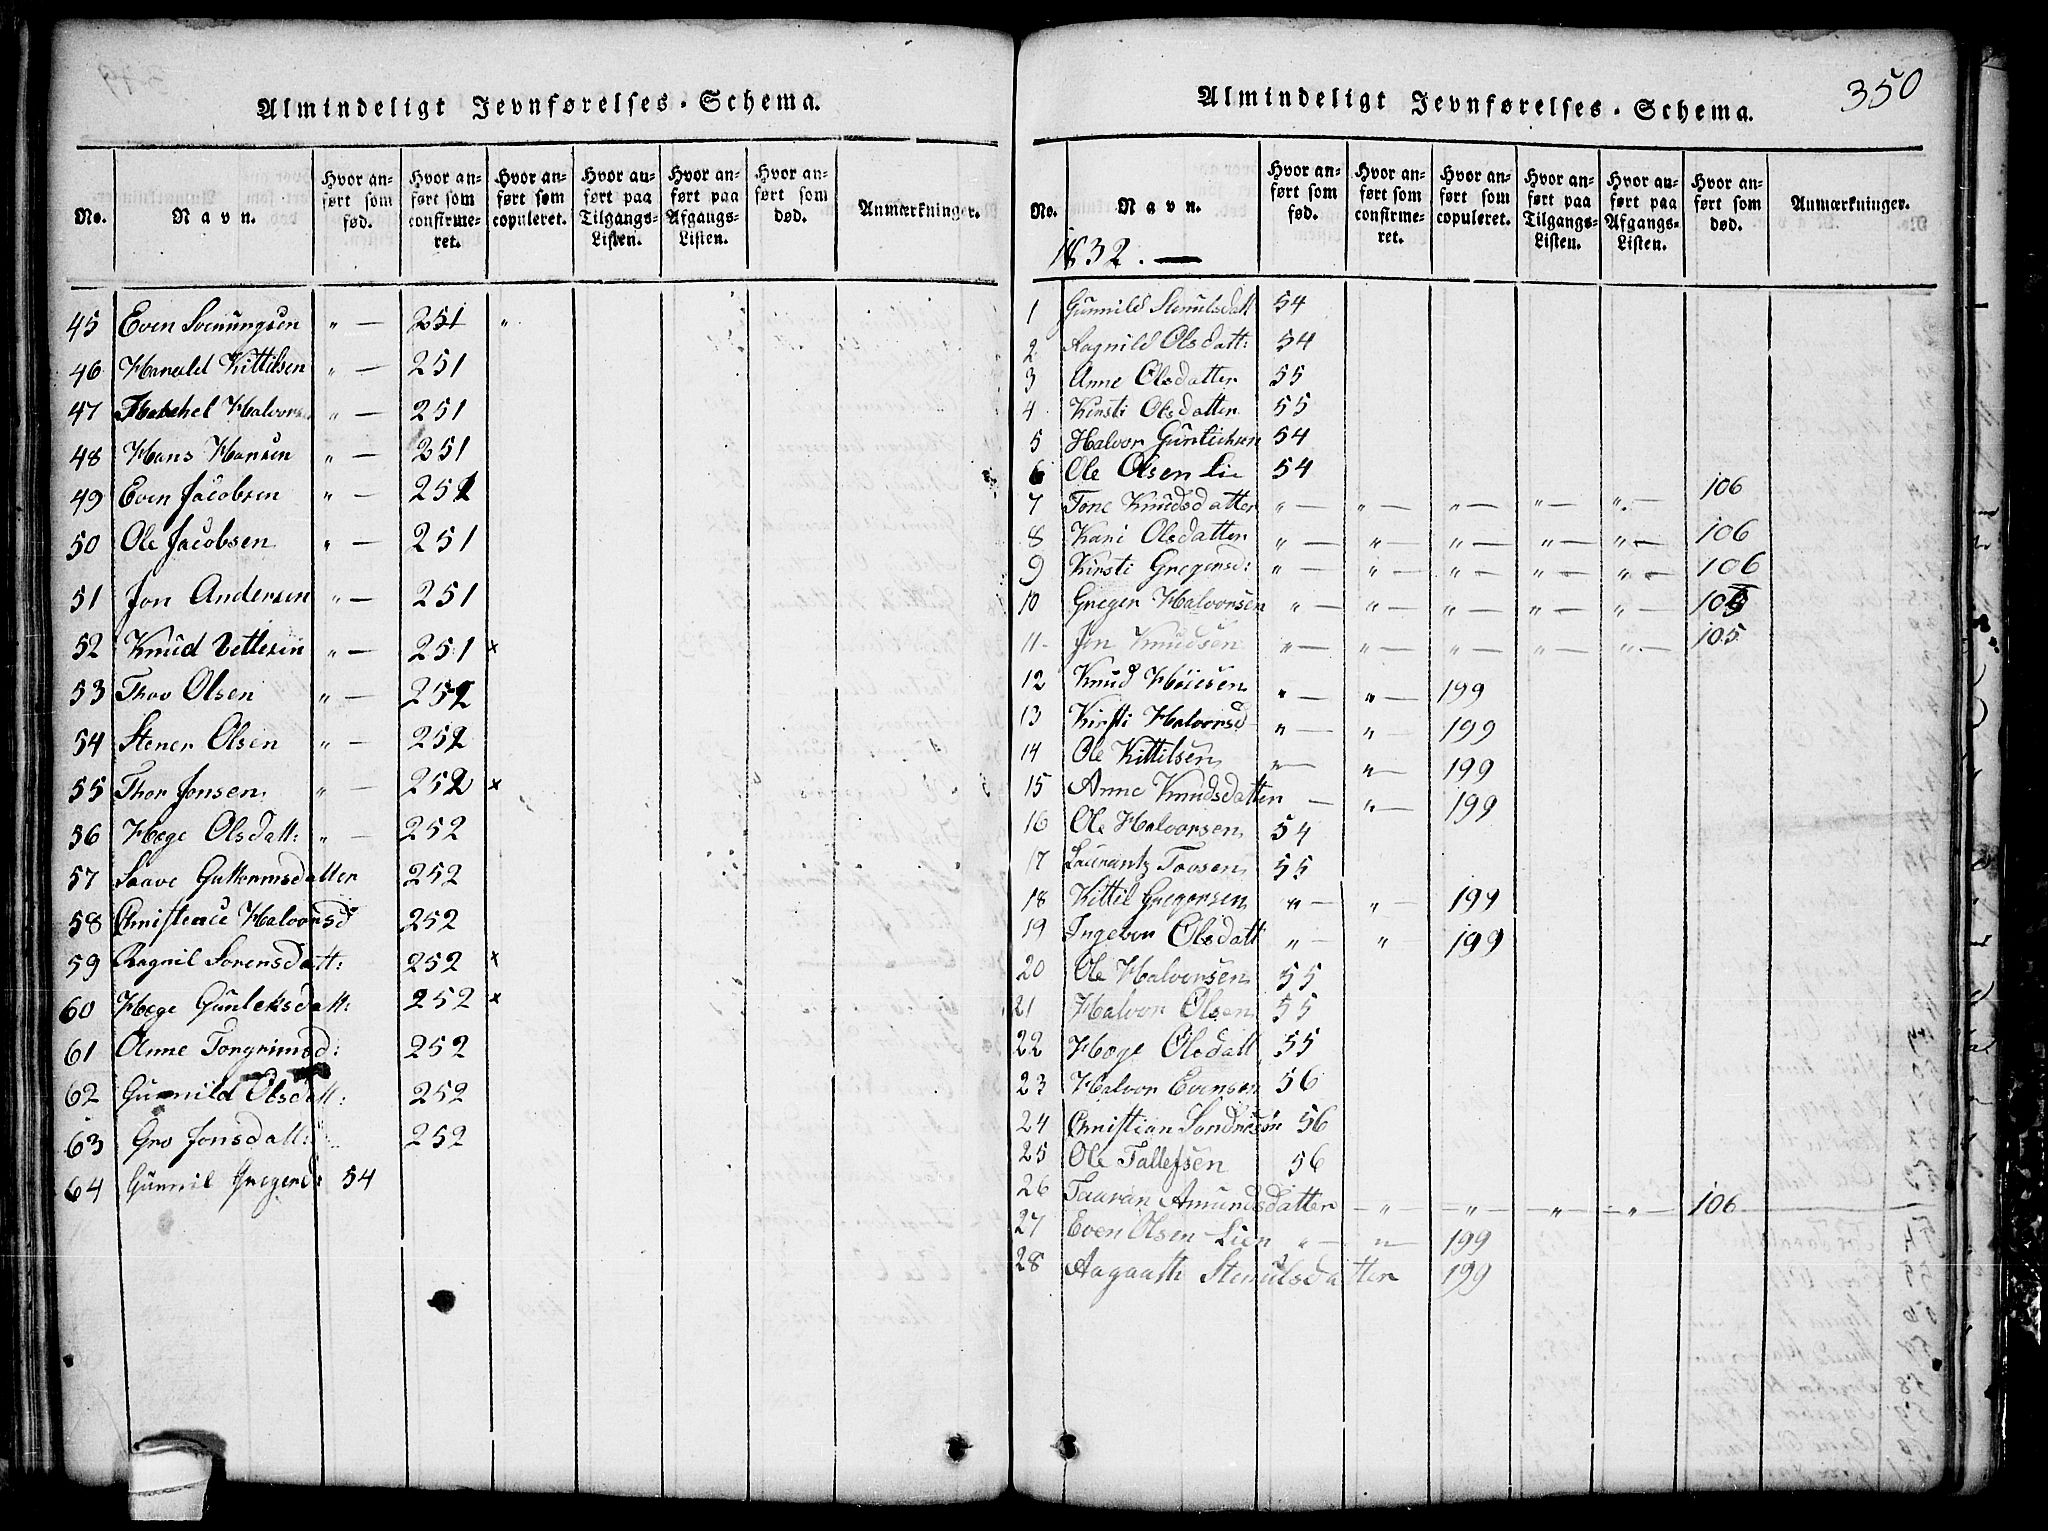 Almindeligt Jevnførelses-Schema.
No. | Navn. | Hvor anført som fød. | Hvor anført som confirmeret. | Hvor anført som copuleret. | Hvor anført paa Tilgangs-Listen. | Hvor anført paa Afgangs-Listen. | Hvor anført som død. | Anmærkninger.
45 Even Svenungsen " — 251 "
46 Harald Kittilsen " — 251
47 Halvors " — 251
48 Hans Hansen " — 251
49 Even Jacobsen " — 251
50 Ole Jacobsen " — 251
51 Jon Andersen " — 251
52 Knud Vetlesen " — 251 x
53 Thov Olsen " — 252
54 Stener Olsen " — 252
55 Thor Jonsen " — 252 x
56 Hæge Olsdatt: " — 252
57 Saave Guttormsdatter 252
58 Halvorsd 252
59 Ragnil Sorensdatt: 252 x
60 Hæge Gunleksdatt: 252 x
61 Anne Torgrimsd: 252
62 Gunnild Olsdatt: 252
63 Gro Jonsdatt: 252
64 Gunnil Gregerd: 54
Almindeligt Jevnførelses-Schema.
350
No. | Navn. | Hvor anført som fød. | Hvor anført som confirmeret. | Hvor anført som copuleret. | Hvor anført paa Tilgangs-Listen. | Hvor anført paa Afgangs-Listen. | Hvor anført som død. | Anmærkninger.
1832. —
1 Gunnild Stenulsdatt 54
2 Aagnild Olsdatt: 54
3 Anne Olsdatter 55
4 Kirsti Olsdatter 55
5 Halvor Gunlichsen 54
6 Ole Olsen Lie 54
7 Tone Knudsdatter " — " — " — " — " — 106
8 Kari Olsdatter " — " — " — " — " — 106
9 Kirsti Gregersd: " — " — " — " — " — 106
10 Greger Halvorsen " — " — " — " — " — 105
11 Jon Knudsen " — " — " — " — " — 105
12 Knud Høiesen " — " — 199
13 Kirsti Halvorsd " — " — 199
14 Ole Kittilsen " — " — 199
15 Anne Knudsdatter — " — 199
16 Ole Halvorsen 54
17 Laurantz Tovsen 55
18 Kittil Gregersen " — " — 199
19 Ingebor Olsdatt " — " 199
20 Ole Halvorsen 55
21 Halvor Olsen 55
22 Hæge Olsdatt 55
23 Halvor Evensen 56
24 Christian Sondresen 56
25 Ole Tallefsen 56
26 Taaran Amundsdatter — " — " — " — " — 106
27 Even Olsen Lien " — " — 199
28 Aagaath Stenulsdatter 199